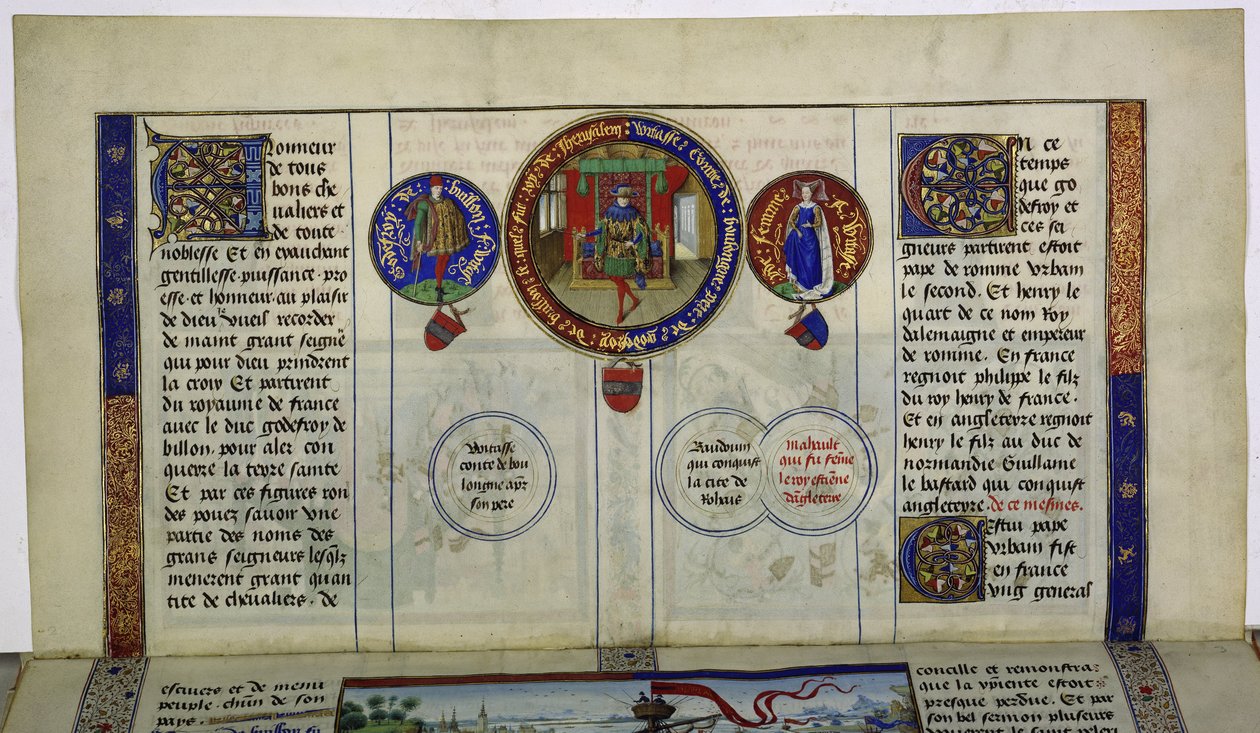 A lonneur
de tous
bons che
ualiers et
de toute
noblesse Et en exauchant
gentillesse·puissance·pro
esse·et honneur·au plaisir
de dieu Je vueil recorder
de maint grant seignr
qui pour dieu prindrent
la croix Et partirent
du royaume de france
avec le duc godefroy de
billon, pour aler con
querre la terre sainte
Et par ces figures ron
des pouez savoir vne
partie des noms des
grans seigneurs lesqlz
menerent grant quan
tite de chevaliers. de
de : buillon
witasse Conte de boulongne pere de godefroy de buillon le quel fut roy de Jherusalem
femme
Witasse
conte de bou
longne apz
son pere
Baudouin
qui conquist
la cite de
Rohais
Mahault
qui fu feme
le roy estiene
dangleterre
En ce
temps
que go
defroy et
ces sei
gneurs partirent estoit
pape de romme vrbam
le second. Et henry le
quart de ce nom Roy
dalemaigne et empereur
de romme. En france
regnoit philippe le filz
du roy henry de france.
Et en angleterre regnoit
henry le filz au duc de
normandie Guillame
le bastard qui conquist
angleterre. de ce mesmes.
Cestui pape
vrbam fist
en france
vng general
esciuers et de menu
peuple. chun de son
pays.
concille et remonstra
que la vpiente estoit
presque perdue. Et par
son bel sermon pluseurs